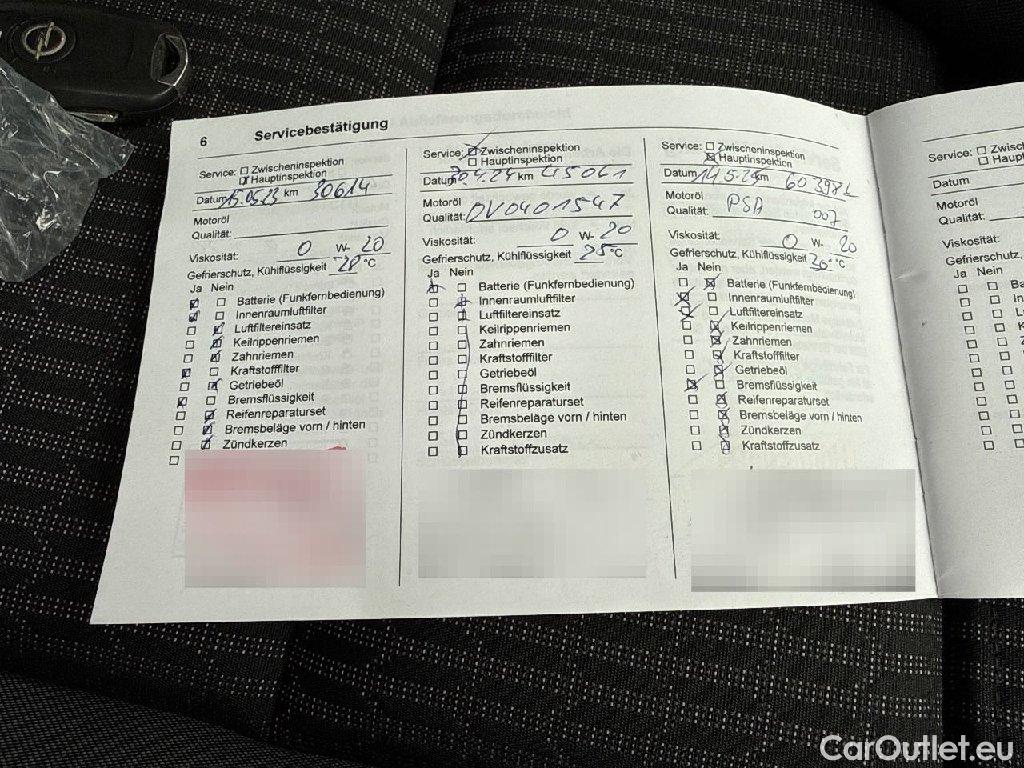 6 Servicebestätigung
Service: Zwischeninspektion
Hauptinspektion
Datum 15.05.23 km 30614
Motoröl
Qualität:
Viskosität: 0 W- 20
Gefrierschutz, Kühlflüssigkeit 28 °C
Ja Nein
Batterie (Funkfernbedienung)
Innenraumluftfilter
Luftfiltereinsatz
Keilrippenriemen
Zahnriemen
Kraftstofffilter
Getriebeöl
Bremsflüssigkeit
Reifenreparaturset
Bremsbeläge vorn / hinten
Zündkerzen
Service: Zwischeninspektion
Hauptinspektion
Datum 30.4.24 km 45061
Motoröl
Qualität: OV0401547
Viskosität: 0 W- 20
Gefrierschutz, Kühlflüssigkeit 25 °C
Ja Nein
Batterie (Funkfernbedienung)
Innenraumluftfilter
Luftfiltereinsatz
Keilrippenriemen
Zahnriemen
Kraftstofffilter
Getriebeöl
Bremsflüssigkeit
Reifenreparaturset
Bremsbeläge vorn / hinten
Zündkerzen
Kraftstoffzusatz
Service: Zwischeninspektion
Hauptinspektion
Datum km
Motoröl
Qualität: PSA 007
Viskosität: 0 W- 20
Gefrierschutz, Kühlflüssigkeit °C
Ja Nein
Batterie (Funkfernbedienung)
Innenraumluftfilter
Luftfiltereinsatz
Keilrippenriemen
Zahnriemen
Kraftstofffilter
Getriebeöl
Bremsflüssigkeit
Reifenreparaturset
Bremsbeläge vorn / hinten
Zündkerzen
Kraftstoffzusatz
Service:
Datum
Motoröl
Qualität:
Viskosität:
Gefrierschutz,
Ja Nein
CarOutlet.eu